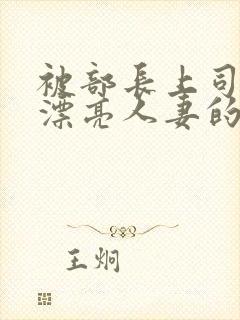 被部长上司
漂亮人妻的
王炯